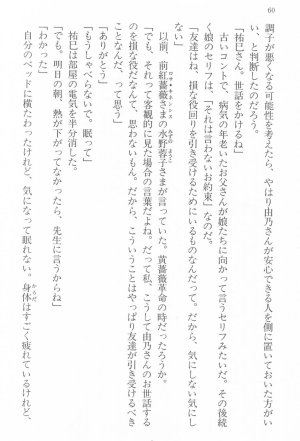 60
調子が悪くなる可能性を考えたら、やはり由乃さんが安心できる人を側に置いておいた方がい
い、と判断したのだろう。
「祐巳さん。世話をかけるね」
古いコントで、病気の年老いたお父さんが娘たちに向かって言うセリフみたいだ。その後続
く娘のセリフは、「それは言わないお約束」なのだ。
「友達はね、損な役回りを引き受けるためにいるものなんだって。だから、気にしない気にし
ない」
以前、前紅薔薇さまの水野蓉子さまが言っていた。黄薔薇革命の時だったろうか。
「でも、それって客観的に見た場合の言葉だよね。だって私、こうして由乃さんのお世話する
のを損な役だなんて、思わないもん。だから、こういうことはやっぱり友達が引き受けるべき
ことなんだ、って思う」
「ありがとう」
「もうしゃべらないで、眠って」
祐巳は部屋の電気を半分消した。
「でも、明日の朝、熱が下がってなかったら、先生に言うからね」
「わかった」
自分のベッドに横たわったけれど、気になって眠れない。身体はすごく疲れているけれど、